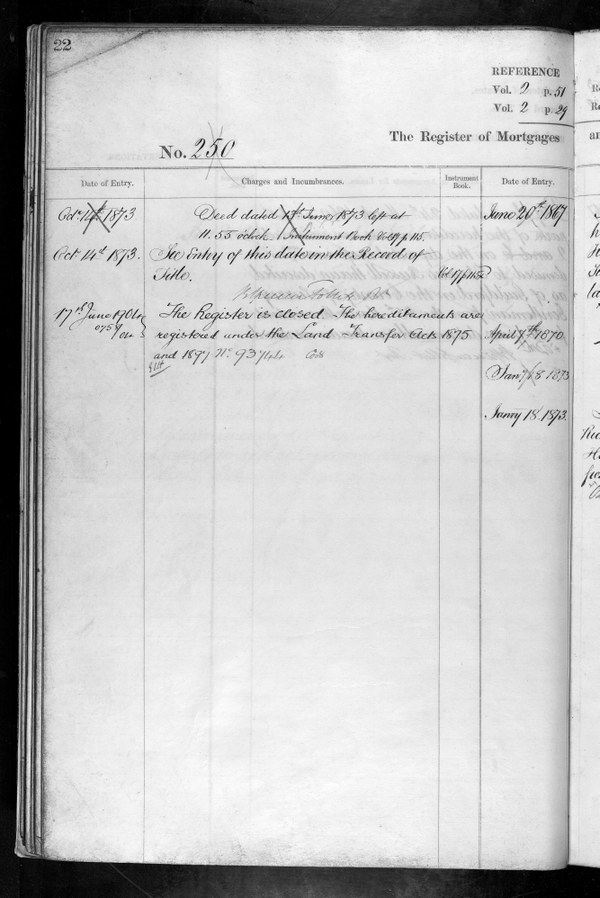 22
REFERENCE
Vol. 2 p. 51
Vol. 2 p. 29
The Register of Mortgages
No. 250
Date of Entry.
Charges and Incumbrances.
Instrument Book.
Date of Entry.
Octr 14th 1873
Deed dated 13th June 1873 left at
11.55 o'clock Instrument Book Vol 19 p 115.
June 20th 1867
Oct 14th 1873.
See Entry of this date in the Record of
Title.
Vol 19 p 115
17th June 1904
The Register is closed The hereditaments are
registered under the Land Transfer Acts 1875
and 1897 No 93744
April 7th 1870
Jany 18 1873
Jany 18 1873.